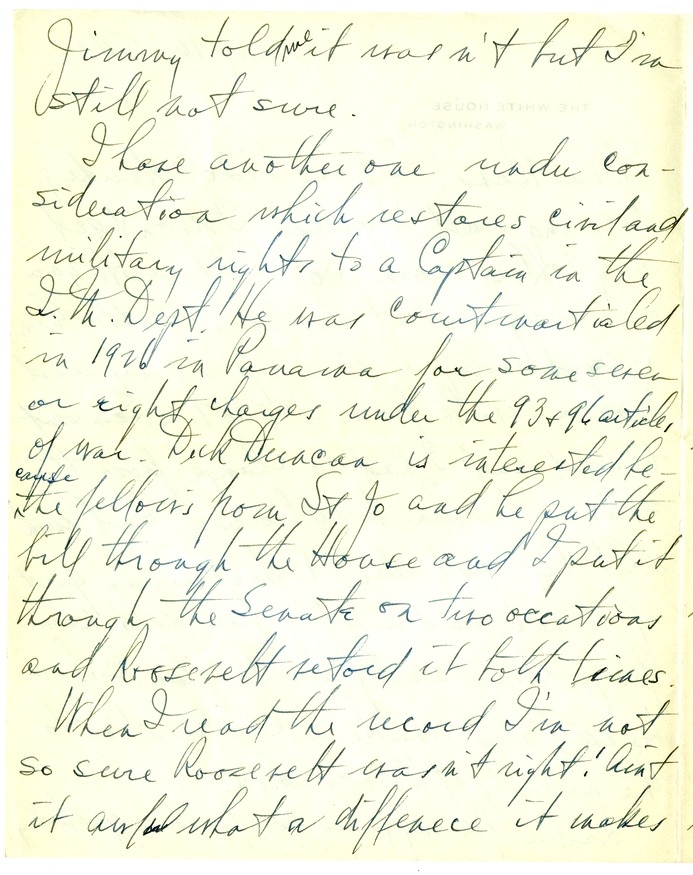 Jimmy told me it was n't but I'm
still not sure.
THE WHITE HOUSE
WASHINGTON
I have another one under con-
sideration which restores civil and
military rights to a Captain in the
Q.M. Dept. He was courtmartialed
in 1926 in Panama for some seven
or eight charges under the 93 & 96 articles
of war. Dick Duncan is interested be-
cause
the fellow's from St Jo and he put the
bill through the House and I put it
through the Senate on two occations
and Roosevelt vetoed it both times.
When I read the record I'm not
so sure Roosevelt wasn't right! Ain't
it awful what a diffenece it makes